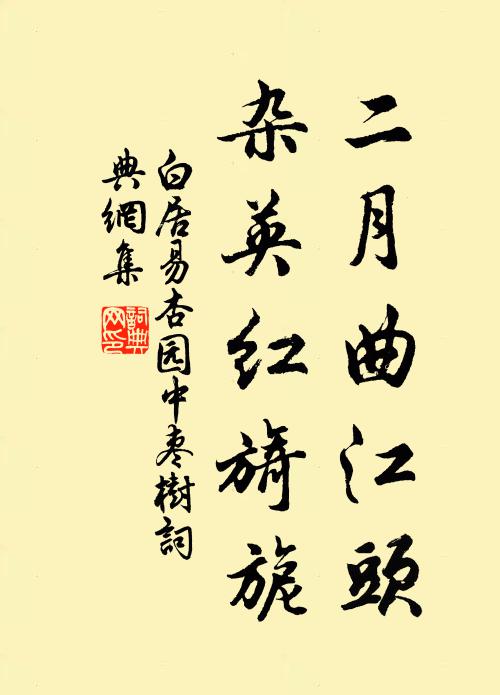 二月曲江頭
杂英红旖旎
白居易杏园中枣樹詞
典網集
詞典
网印